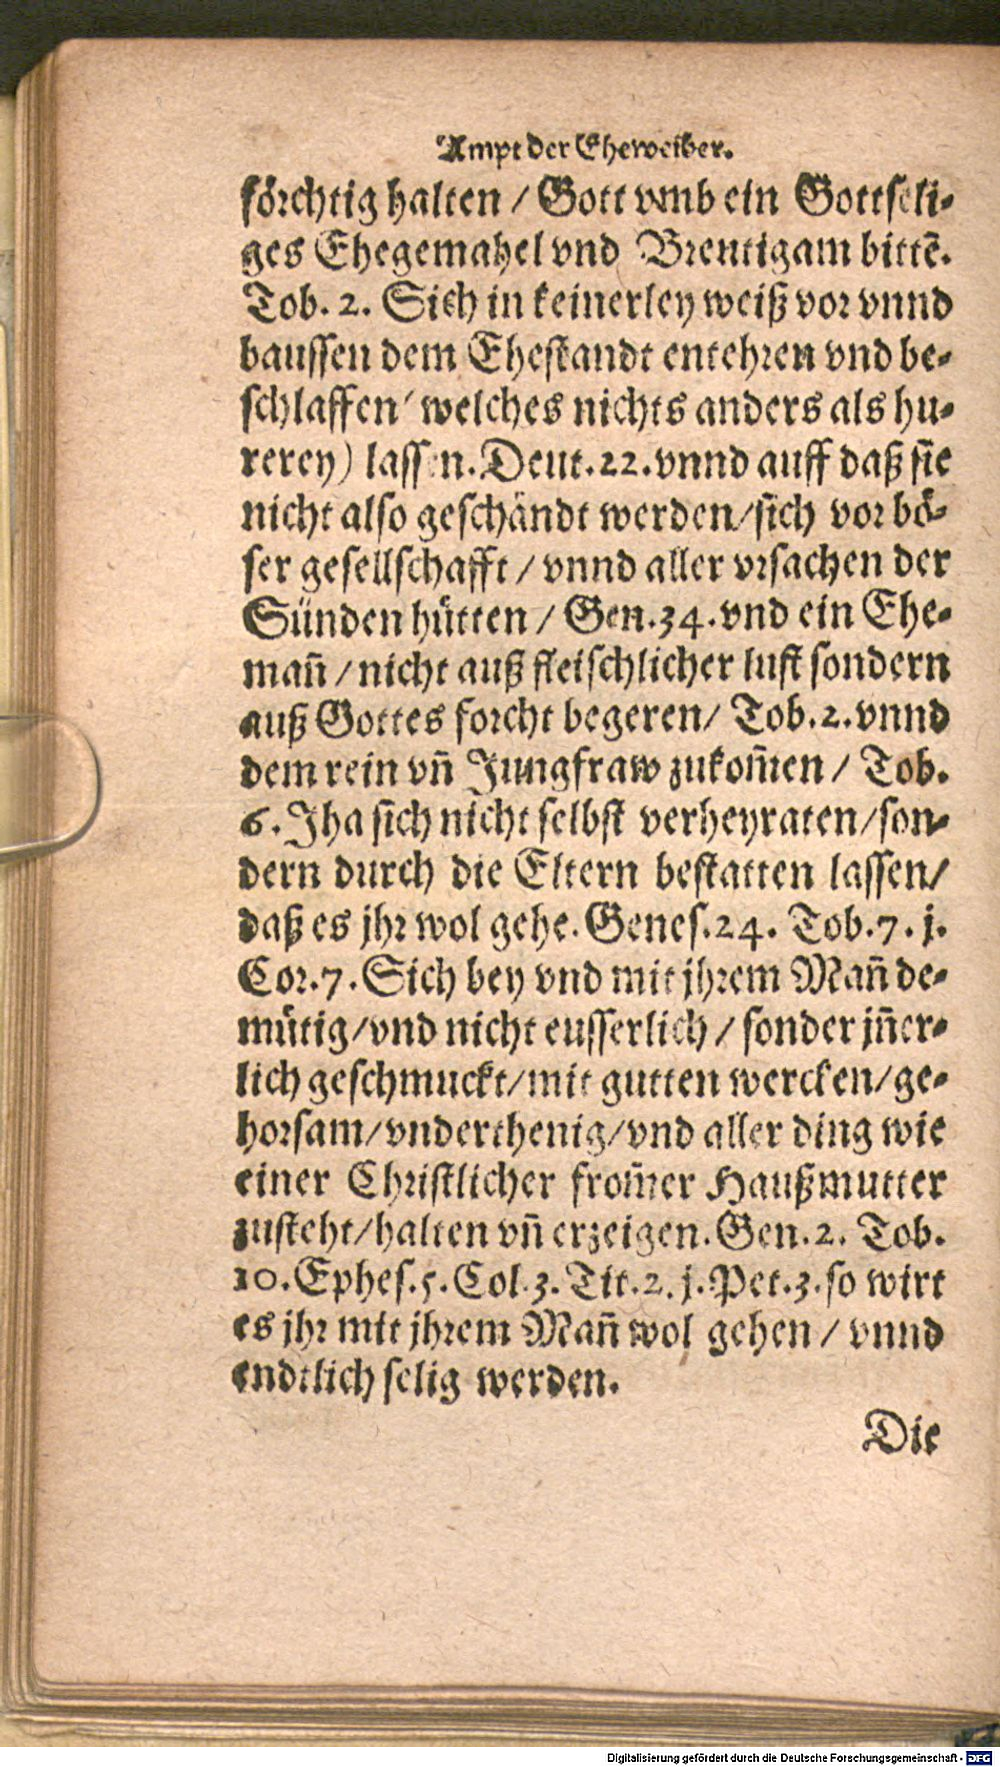 Ampt der Eheweiber.
förchtig halten / Gott vmb ein Gottseli-
ges Ehegemahel vnd Breutigam bittē.
Tob. 2. Sich in keinerley weiß vor vnnd
baussen dem Ehestandt entehren vnd be-
schlaffen (welches nichts anders als hu-
rerey) lassen. Deut. 22. vnnd auff daß sie
nicht also geschändt werden / sich vor bö-
ser gesellschafft / vnnd aller vrsachen der
Sünden hütten / Gen. 34. vnd ein Ehe-
mañ / nicht auß fleischlicher lust sondern
auß Gottes forcht begeren / Tob. 2. vnnd
dem rein vñ Jungfraw zukom̃en / Tob.
6. Jha sich nicht selbst verheyraten / son-
dern durch die Eltern bestatten lassen /
daß es jhr wol gehe. Genes. 24. Tob. 7. j.
Cor. 7. Sich bey vnd mit jhrem Mañ de-
mütig / vnd nicht eusserlich / sonder jñer-
lich geschmuckt / mit gutten wercken / ge-
horsam / vnderthenig / vnd aller ding wie
einer Christlicher from̃er Haußmutter
zusteht / halten vñ erzeigen. Gen. 2. Tob.
10. Ephes. 5. Col. 3. Tit. 2. j. Pet. 3. so wirt
es jhr mit jhrem Mañ wol gehen / vnnd
endtlich selig werden.
Die
Digitalisierung gefördert durch die Deutsche Forschungsgemeinschaft - DFG